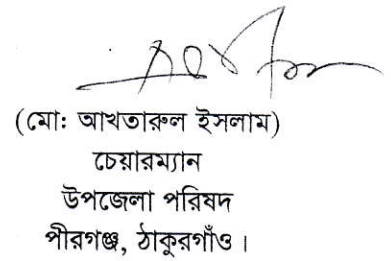 (মো: আখতারুল ইসলাম)
চেয়ারম্যান
উপজেলা পরিষদ
পীরগঞ্জ, ঠাকুরগাঁও ।